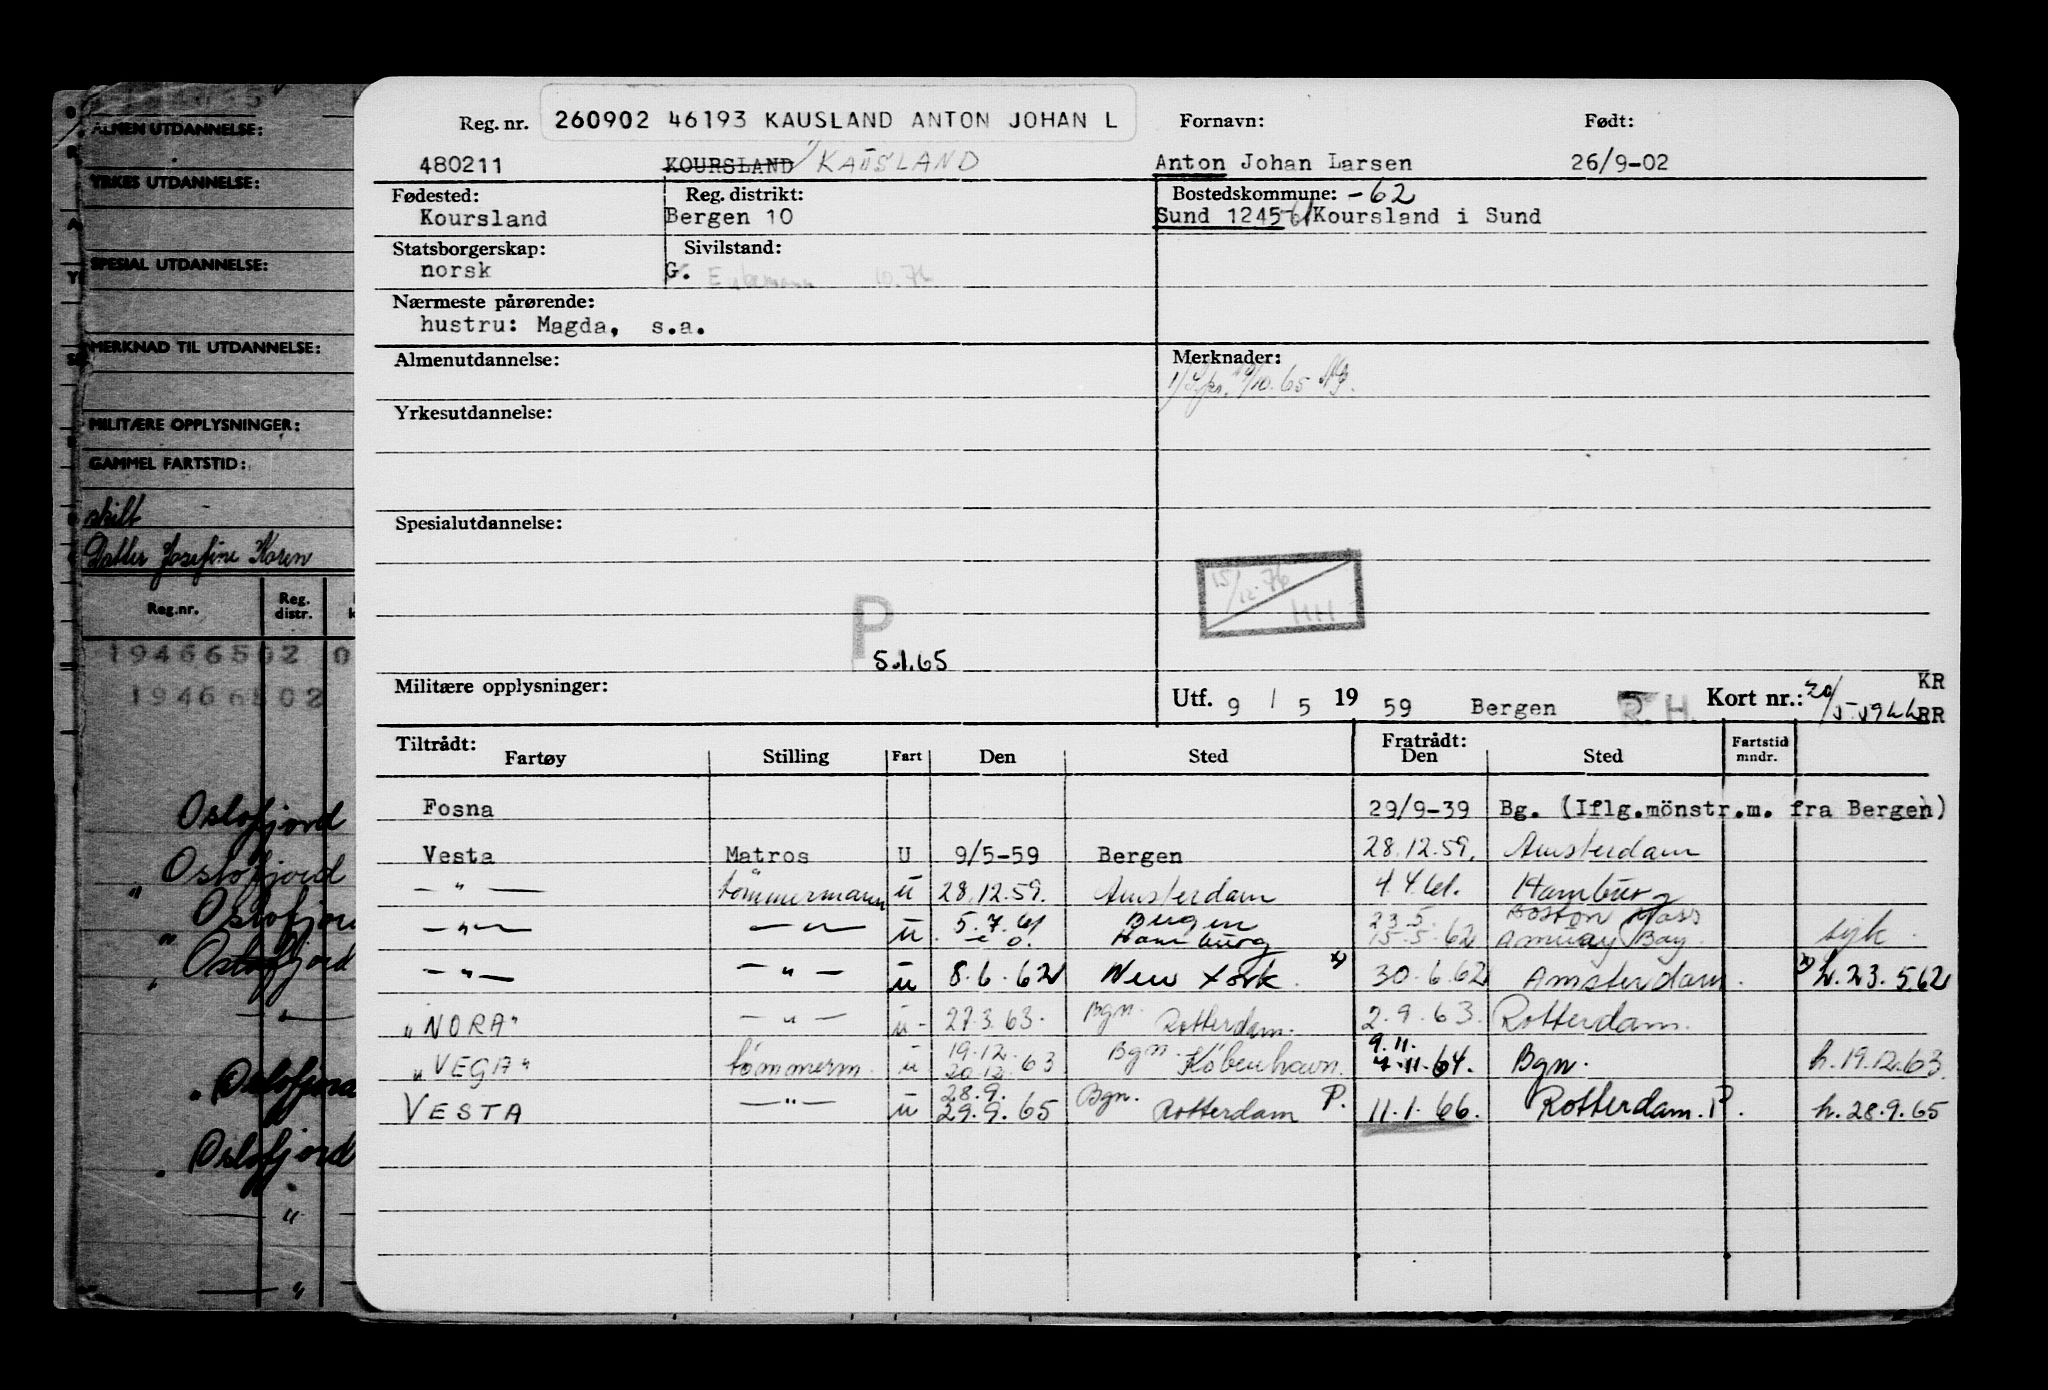 ALMEN UTDANNELSE:
YRKES UTDANNELSE:
SPESIAL UTDANNELSE:
MERKNAD TIL UTDANNELSE:
MILITÆRE OPPLYSNINGER:
GAMMEL FARTSTID:
skilt
Datter Josefine Karen
Reg.nr. Reg. distr.
19466502 0
Oslofjord
Oslofjord
" Oslofjord
" Oslofjord
— " —
Oslofjord
Oslofjord
— "
— "
Reg. nr. 260902 46193 KAUSLAND ANTON JOHAN L Fornavn: Født:
480211 KOURSLAND KAUSLAND Anton Johan Larsen 26/9-02
Fødested: Reg. distrikt: Bostedskommune: -62
Koursland Bergen 10 Sund 1245-61 Koursland i Sund
Statsborgerskap: Sivilstand:
norsk G. 10.76
Nærmeste pårørende:
hustru: Magda, s.a.
Almenutdannelse: Merknader:
10.65
Yrkesutdannelse:
Spesialutdannelse:
15/12.76
HH
P
5.1.65
Militære opplysninger: Utf. 9 / 5 19 59 Bergen R.H. Kort nr.: KR
RR
Tiltrådt: Fratrådt: Fartstid
Fartøy Stilling Fart Den Sted Den Sted mndr.
Fosna 29/9-39 Bg. (Iflg.mönstr.m. fra Bergen)
Vesta Matros U 9/5-59 Bergen 28.12.59. Amsterdam
— " — tömmermann ü 28.12.59. Amsterdam 4.4.61. Hamburg
5.7.61 Bergen 23.5. Boston Mass
— " — — " — ü Hamburg 15.5.62 Bay. syk.
— " — — " — ü 8.6.62 New York. x) 30.6.62 Amsterdam. x) h.23.5.62
"NORA" — " — ü 27.3.63. Bgn. Rotterdam. 2.9.63. Rotterdam.
19.12. 9.11.
"VEGA" tömmerm. ü 20.12.63 Bgn. København. 7.11.64. Bgn. h.19.12.63.
28.9.
VESTA — " — ü 29.9.65 Bgn. Rotterdam P. 11.1.66. Rotterdam. P. h.28.9.65